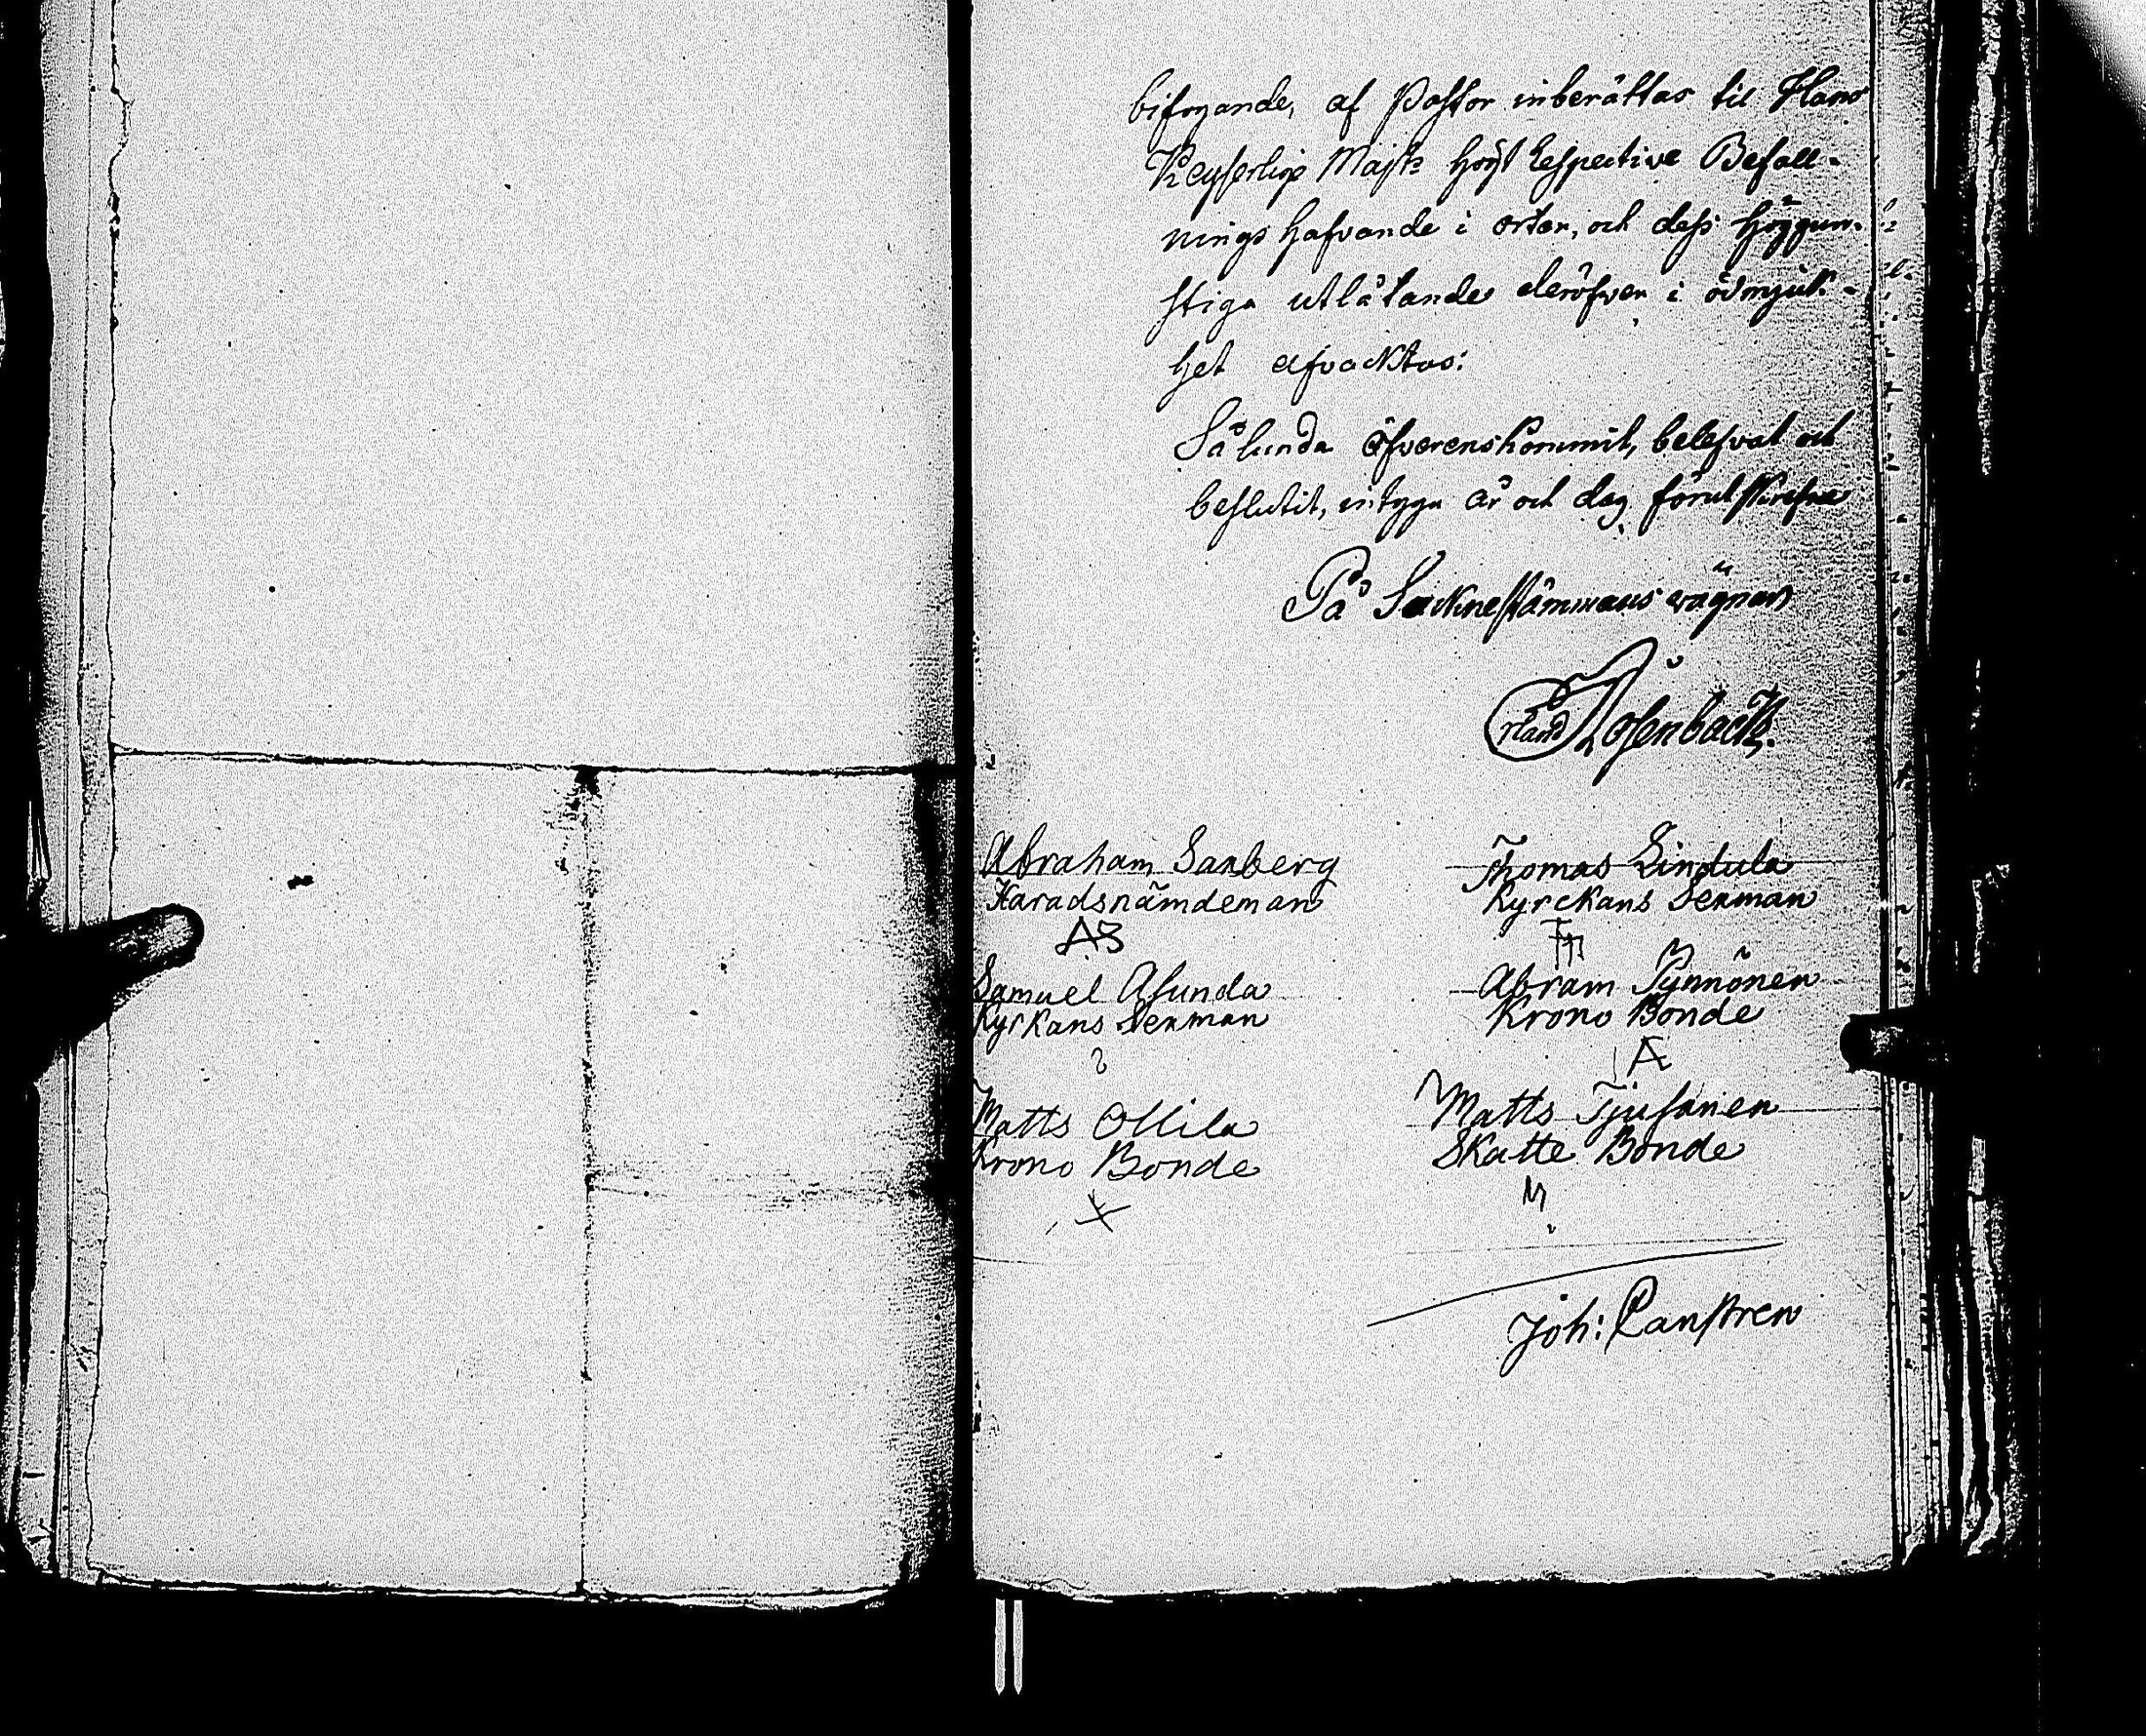 bifogande, af Pastor inberättas til Hans
Keyserlige Majts höyst Respective Befall-
nings hafvande i orten, och dess höggun-
stiga utlåtande deröfver i ödmjuk-
het afvacktas:
Sålunda öfverenskommit, belefvat och
beslutit, intyga år och dag förut skrefne
På Sockne stämmans vägnar
Erland Rosenback.
Abraham Sanberg
Haradsnämdeman
AS
Thomas Lindula
Kyrckans Sexman
Samuel Asunda
Kyrkans Sexman
Abram Pynnönen
Krono Bonde
A
Matts Ollila
Krono Bonde
Matts Tjusanen
Skatte Bonde
M
Joh: Canstren